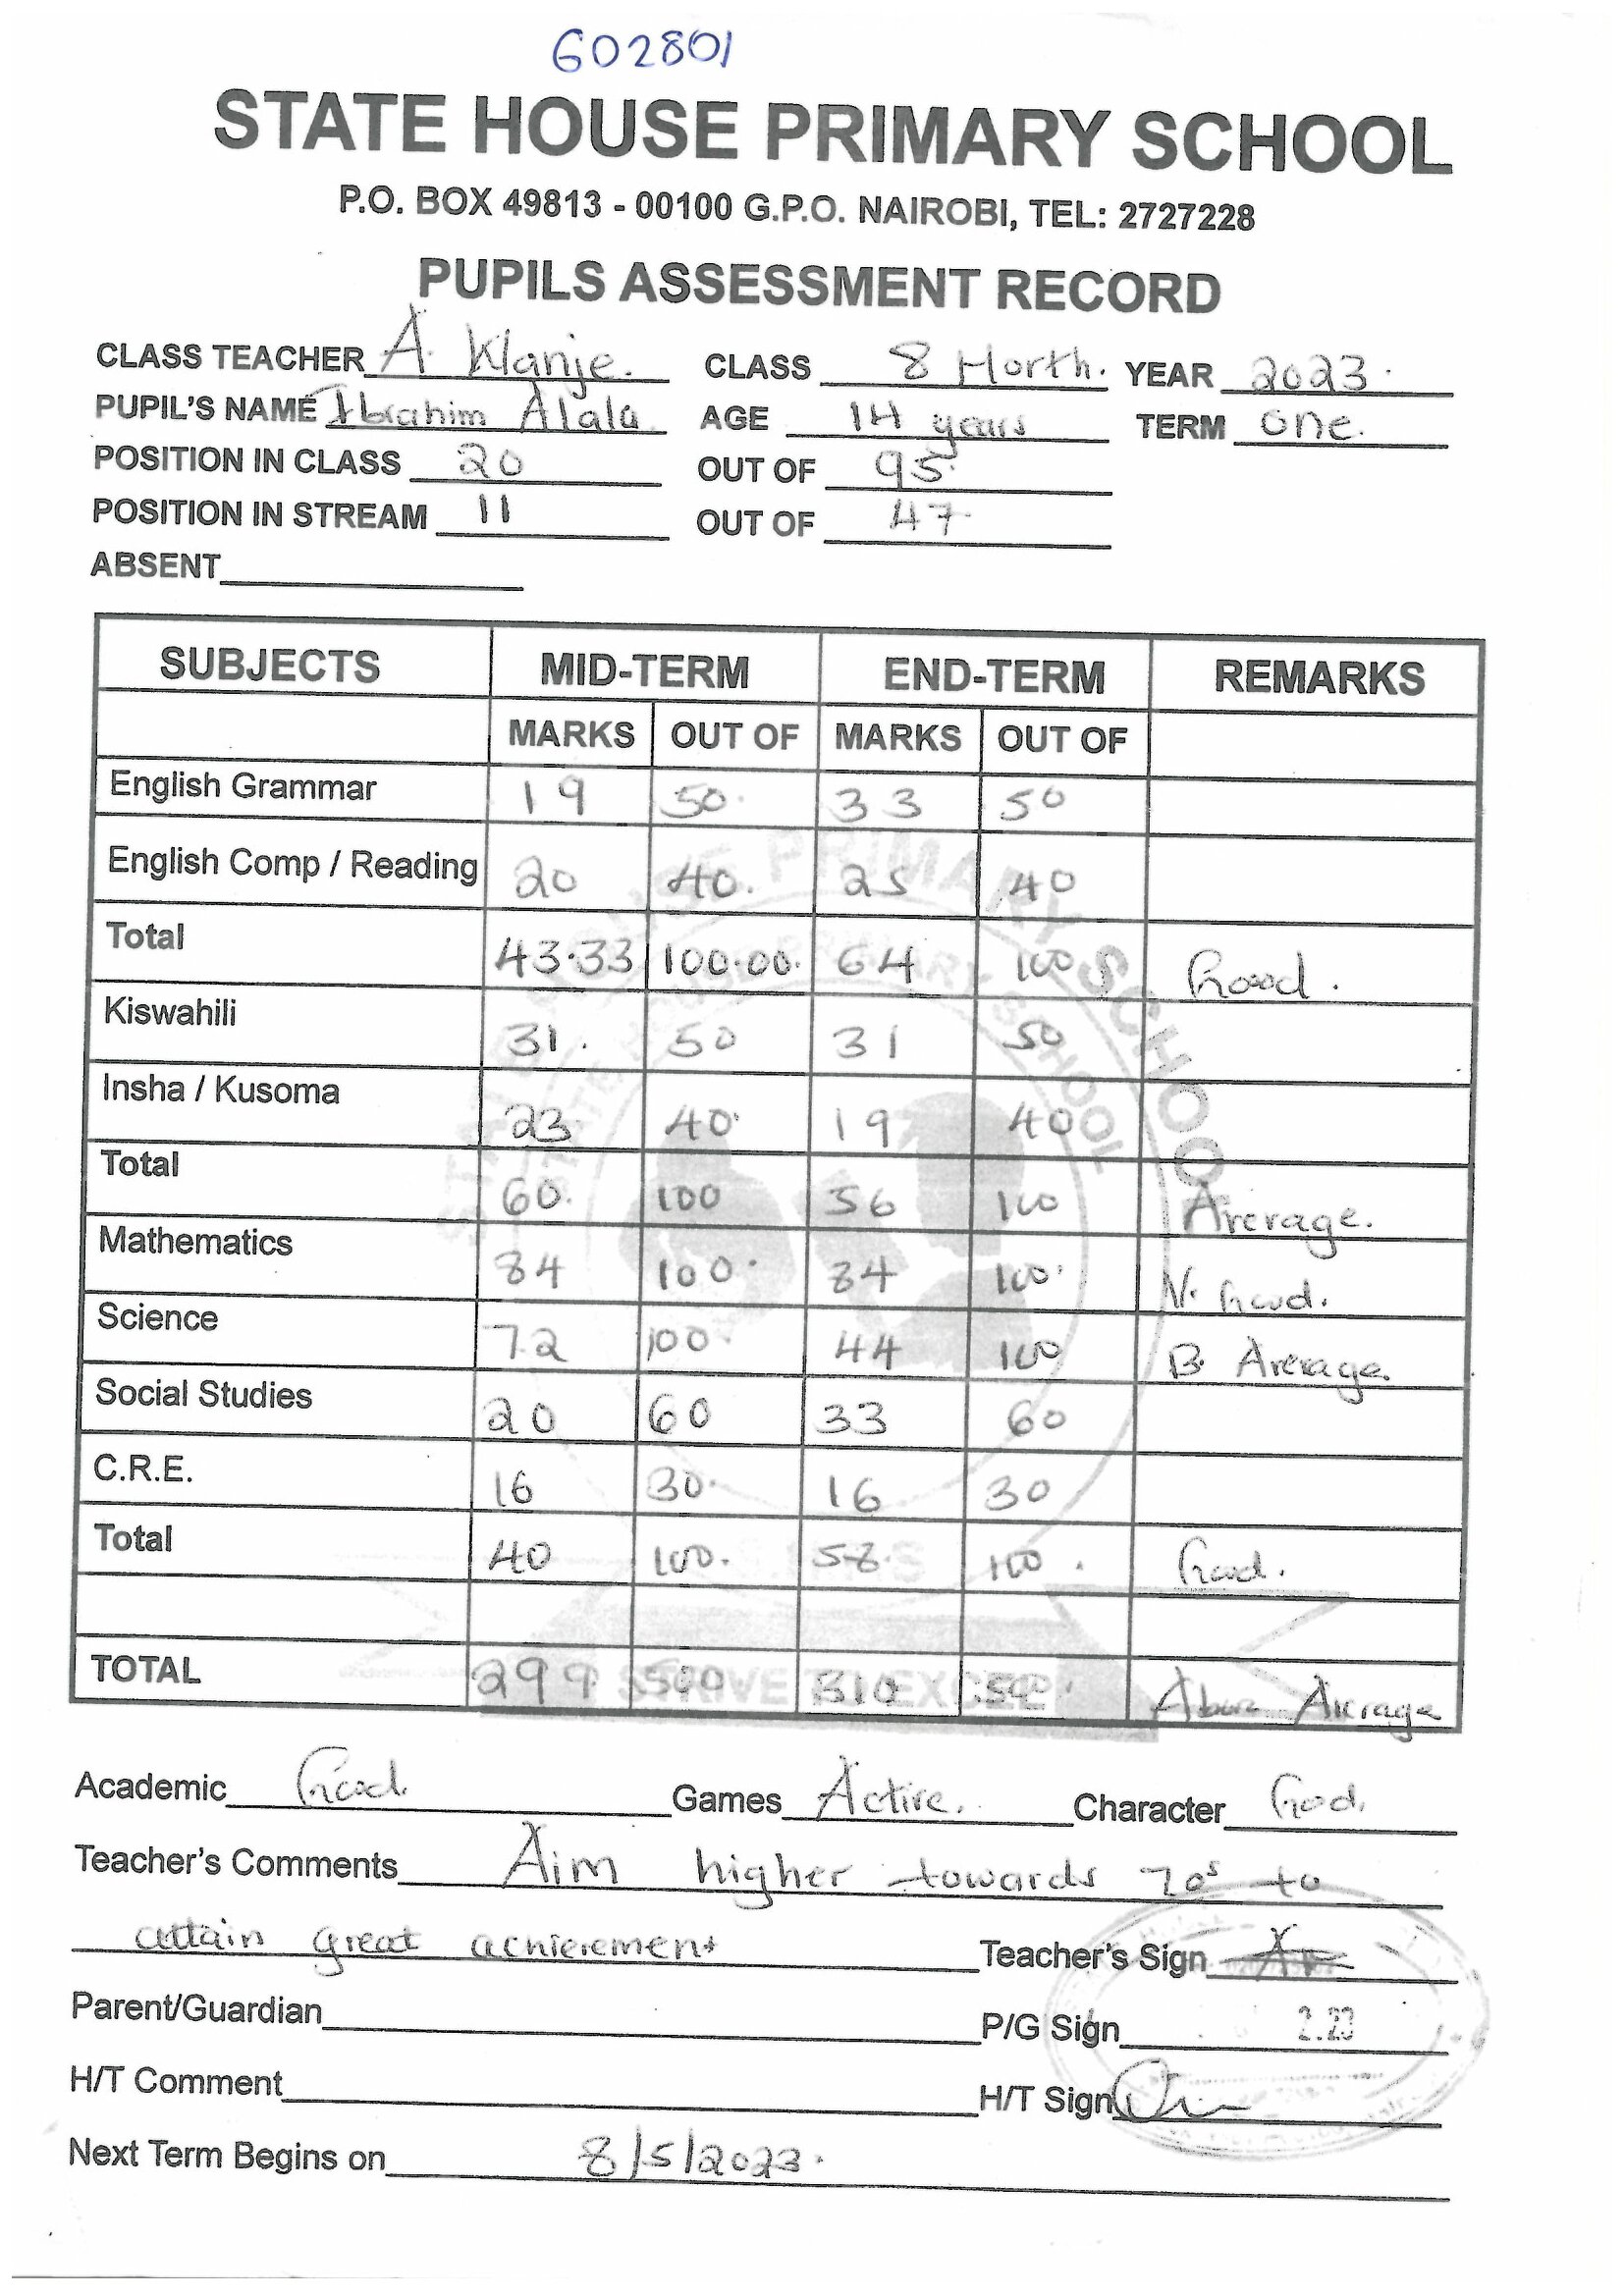 602801
STATE HOUSE PRIMARY SCHOOL
P.O. BOX 49813 - 00100 G.P.O. NAIROBI, TEL: 2727228
PUPILS ASSESSMENT RECORD
CLASS TEACHER A. Klanje. CLASS 8 North. YEAR 2023.
PUPIL'S NAME Ibrahim Alala AGE 14 years TERM one.
POSITION IN CLASS 20 OUT OF 95.
POSITION IN STREAM 11 OUT OF 47.
ABSENT
SUBJECTS MID-TERM END-TERM REMARKS
MARKS OUT OF MARKS OUT OF
English Grammar 19 50. 33 50
English Comp / Reading 20 40. 25 40
Total 43.33 100.00. 64 100 Good.
Kiswahili 31. 50 31 50
Insha / Kusoma 23. 40. 19 40
Total 60. 100 56 100 Average.
Mathematics 84 100. 84 100. V. Good.
Science 72 100. 44 100 B. Average.
Social Studies 20 60 33 60
C.R.E. 16 30. 16 30
Total 40 100. 58. 100. Good.
TOTAL 299 500 310 500. Above Average
STRIVE TO EXCEL
Academic Good. Games Active. Character Good.
Teacher's Comments Aim higher towards 70s to
attain great achievement Teacher's Sign
Parent/Guardian P/G Sign 2.23
H/T Comment H/T Sign
Next Term Begins on 8/5/2023.